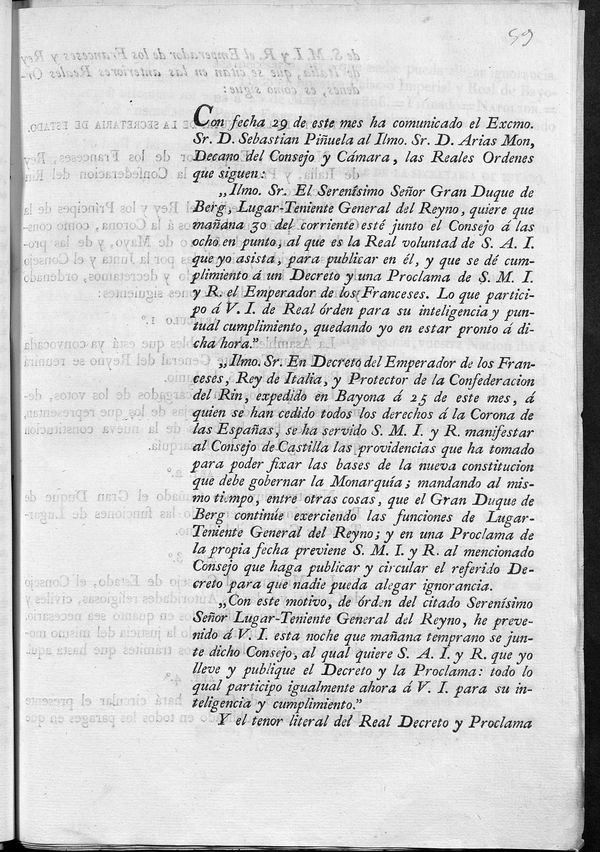 59
Con fecha 29 de este mes ha comunicado el Excmo.
Sr. D. Sebastian Piñuela al Ilmo. Sr. D. Arias Mon,
Decano del Consejo y Cámara, las Reales Ordenes
que siguen:
„Ilmo. Sr. El Serenísimo Señor Gran Duque de
Berg, Lugar-Teniente General del Reyno, quiere que
mañana 30 del corriente esté junto el Consejo á las
ocho en punto, al que es la Real voluntad de S. A. I.
que yo asista, para publicar en él, y que se dé cum-
plimiento á un Decreto y una Proclama de S. M. I.
y R. el Emperador de los Franceses. Lo que partici-
po á V. I. de Real órden para su inteligencia y pun-
tual cumplimiento, quedando yo en estar pronto á di-
cha hora.”
„Ilmo. Sr. En Decreto del Emperador de los Fran-
ceses, Rey de Italia, y Protector de la Confederacion
del Rin, expedido en Bayona á 25 de este mes, á
quien se han cedido todos los derechos á la Corona de
las Españas, se ha servido S. M. I. y R. manifestar
al Consejo de Castilla las providencias que ha tomado
para poder fixar las bases de la nueva constitucion
que debe gobernar la Monarquía; mandando al mis-
mo tiempo, entre otras cosas, que el Gran Duque de
Berg continúe exerciendo las funciones de Lugar-
Teniente General del Reyno; y en una Proclama de
la propia fecha previene S. M. I. y R. al mencionado
Consejo que haga publicar y circular el referido De-
creto para que nadie pueda alegar ignorancia.
„Con este motivo, de órden del citado Serenísimo
Señor Lugar-Teniente General del Reyno, he preve-
nido á V. I. esta noche que mañana temprano se jun-
te dicho Consejo, al qual quiere S. A. I. y R. que yo
lleve y publique el Decreto y la Proclama: todo lo
qual participo igualmente ahora á V. I. para su in-
teligencia y cumplimiento.”
Y el tenor literal del Real Decreto y Proclama